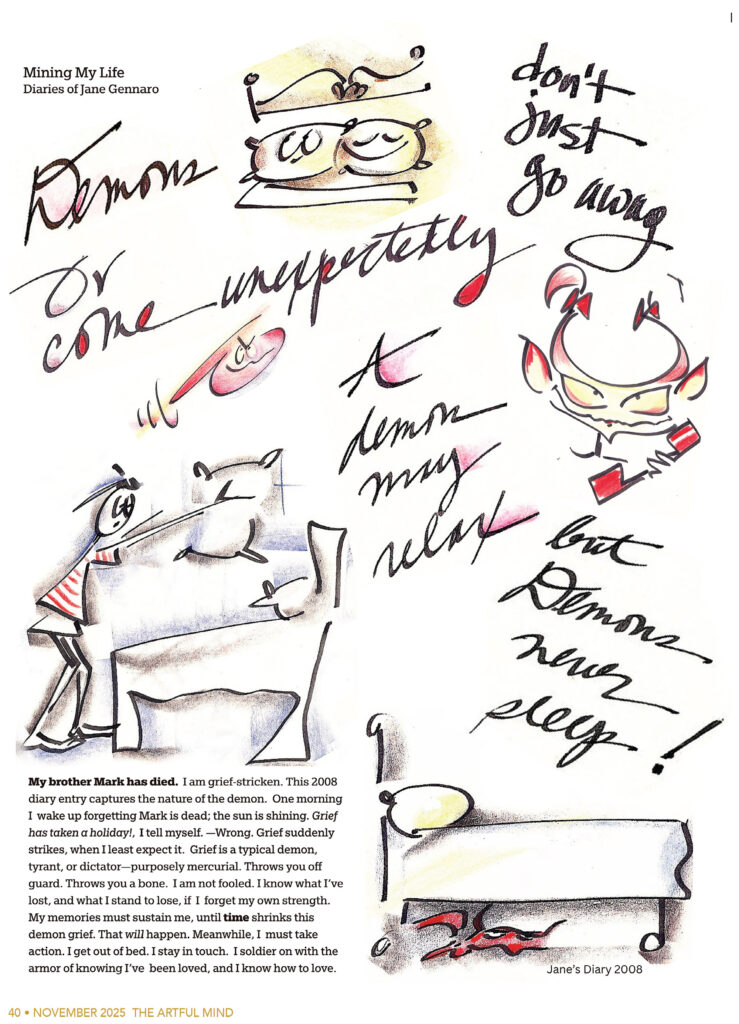 Mining My Life
Diaries of Jane Gennaro
Demons
don't
just
go away
Or
come unexpectedly
A
demon
may
relax
but
Demons
never
sleep!
My brother Mark has died. I am grief-stricken. This 2008
diary entry captures the nature of the demon. One morning
I wake up forgetting Mark is dead; the sun is shining. Grief
has taken a holiday!, I tell myself. —Wrong. Grief suddenly
strikes, when I least expect it. Grief is a typical demon,
tyrant, or dictator—purposely mercurial. Throws you off
guard. Throws you a bone. I am not fooled. I know what I've
lost, and what I stand to lose, if I forget my own strength.
My memories must sustain me, until time shrinks this
demon grief. That will happen. Meanwhile, I must take
action. I get out of bed. I stay in touch. I soldier on with the
armor of knowing I've been loved, and I know how to love.
Jane's Diary 2008
40 • NOVEMBER 2025 THE ARTFUL MIND